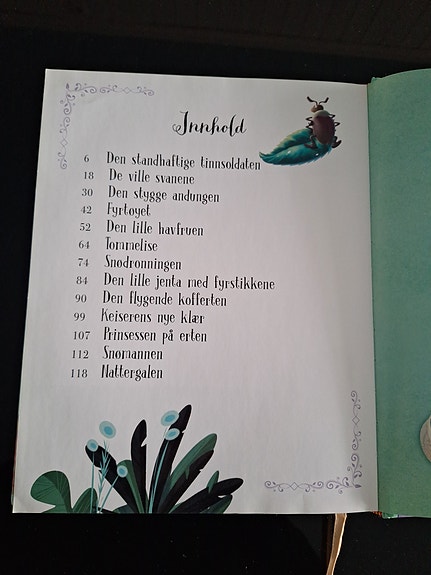 Innhold
6 Den standhaftige tinnsoldaten
18 De ville svanene
30 Den stygge andungen
42 Fyrtøyet
52 Den lille havfruen
64 Tommelise
74 Snødronningen
84 Den lille jenta med fyrstikkene
90 Den flygende kofferten
99 Keiserens nye klær
107 Prinsessen på erten
112 Snømannen
118 Nattergalen